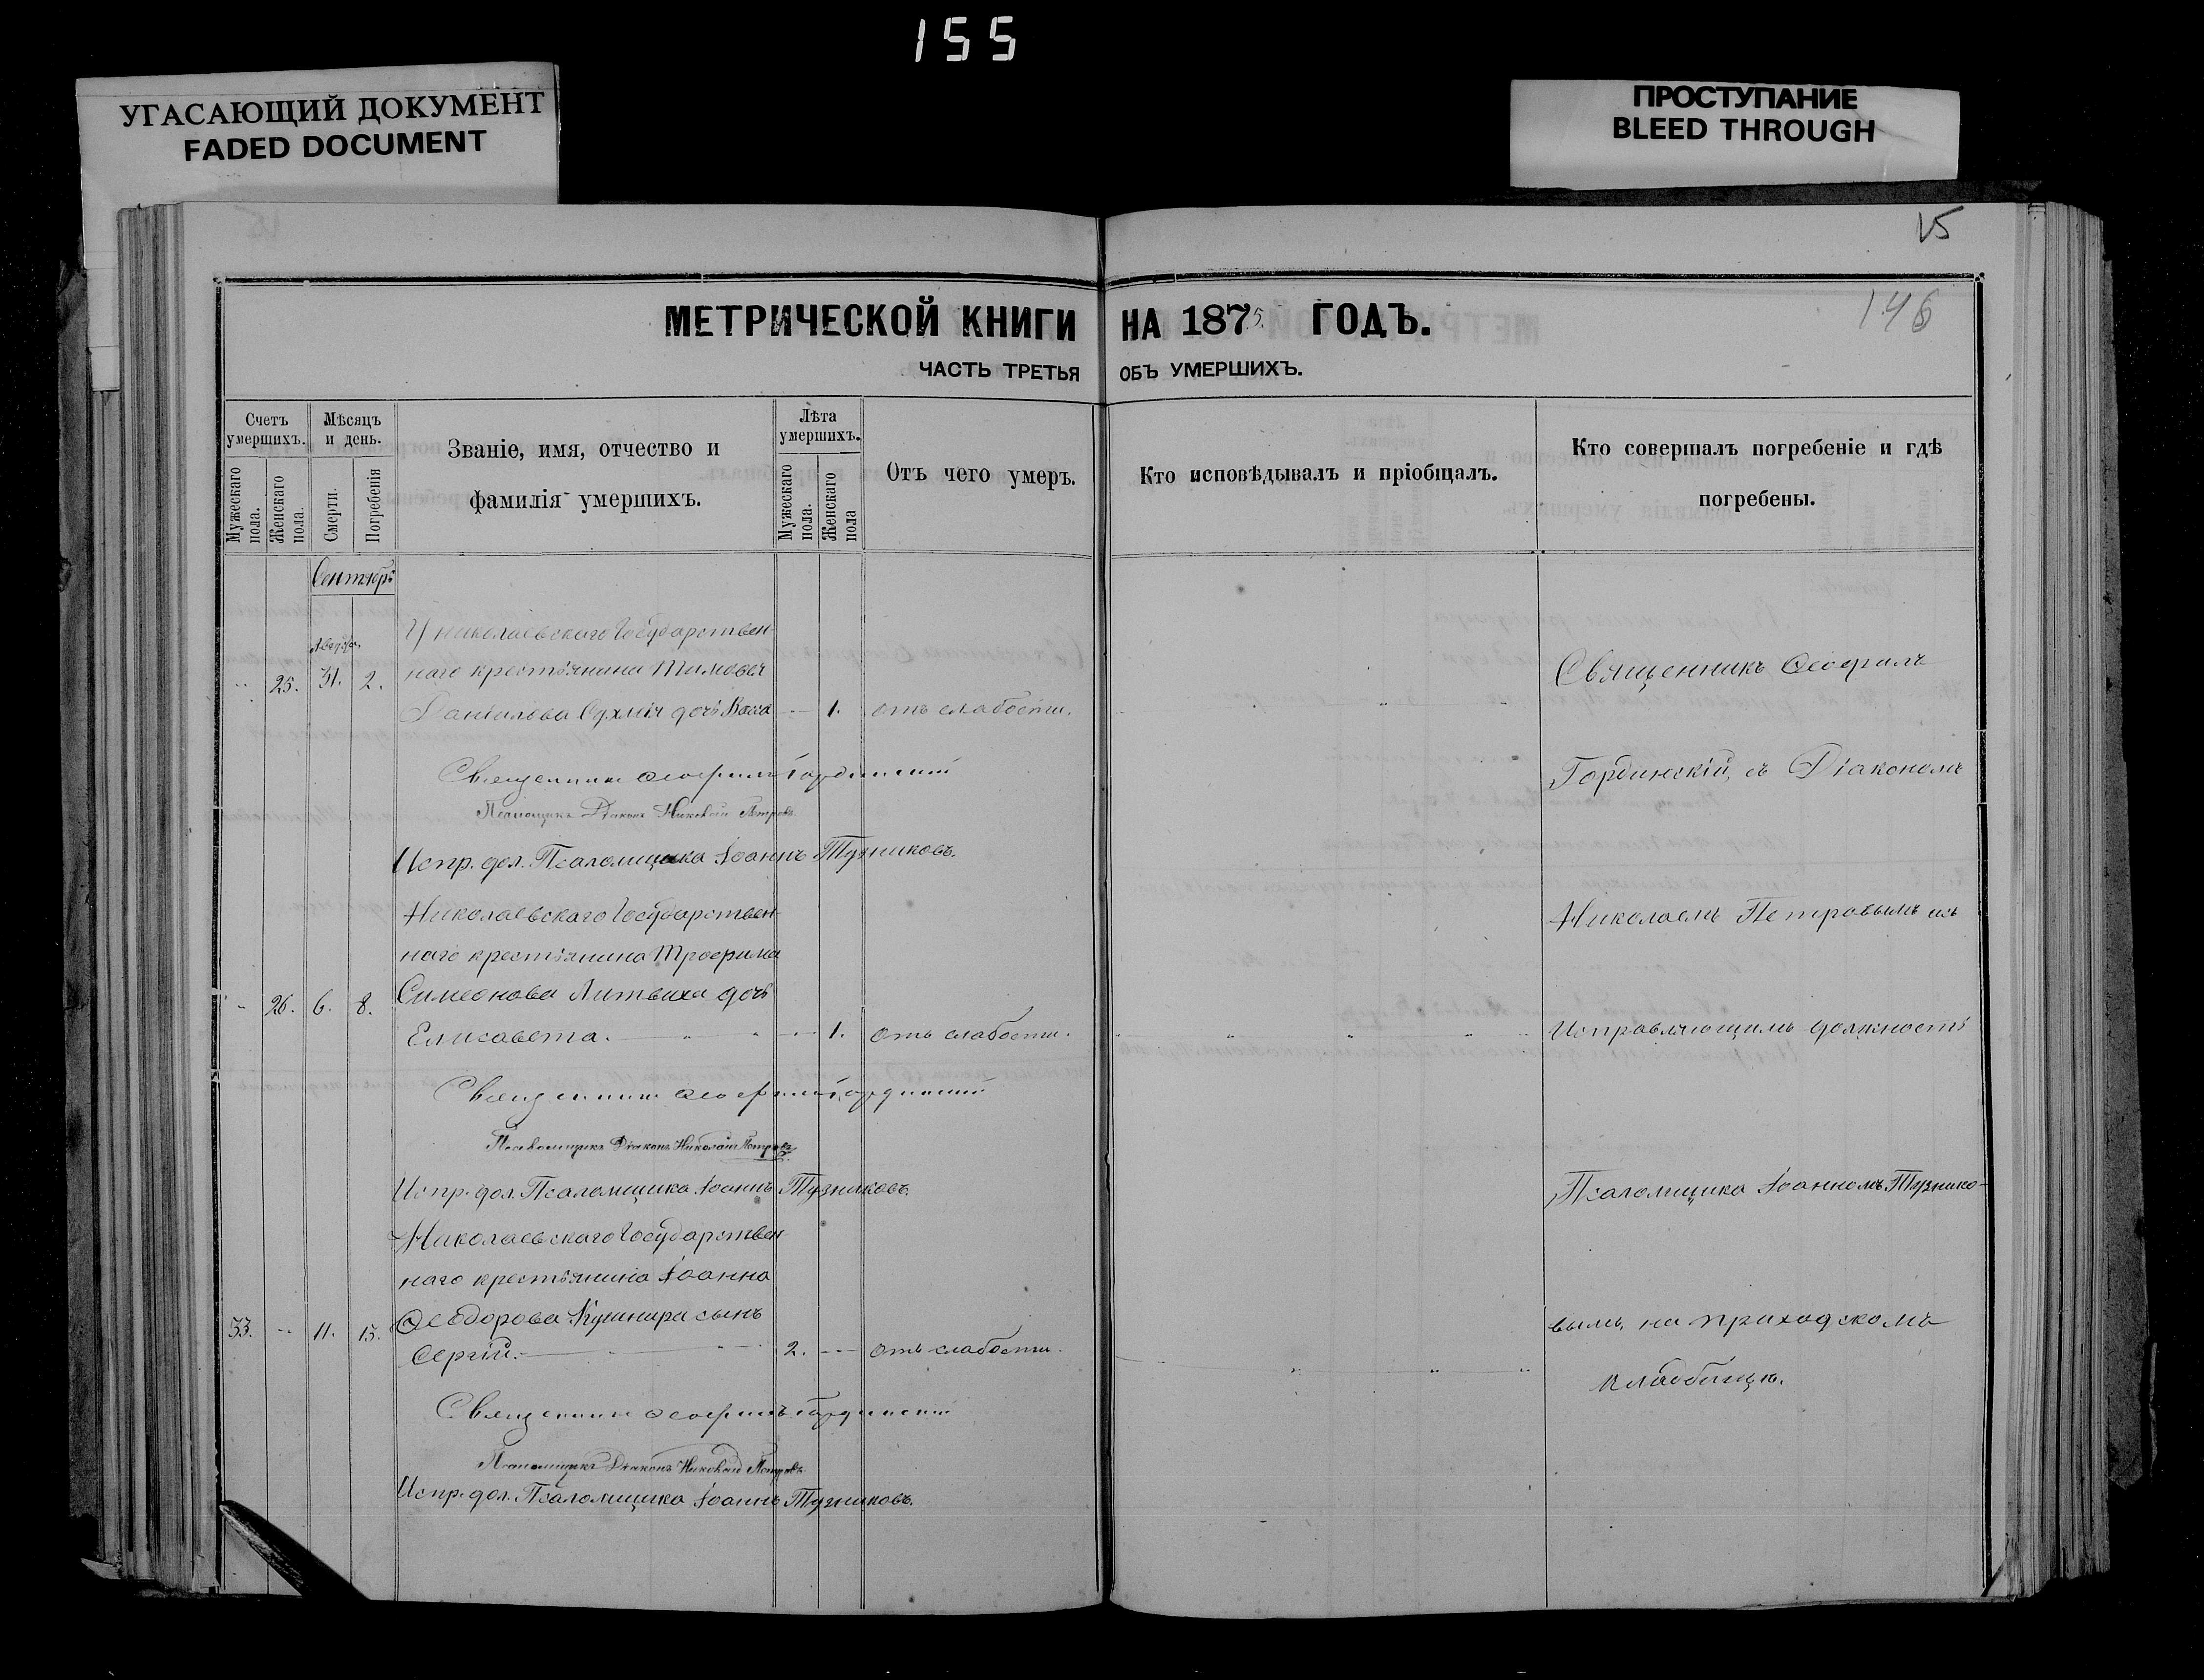 155
УГАСАЮЩИЙ ДОКУМЕНТ
FADED DOCUMENT
ПРОСТУПАНИЕ
BLEED THROUGH
15
146
МЕТРИЧЕСКОЙ КНИГИ НА 1875 ГОДЪ.
ЧАСТЬ ТРЕТЬЯ ОБЪ УМЕРШИХЪ.
Счетъ умершихъ.
Мужескаго пола.
Женскаго пола.
Мѣсяцъ и день.
Смерти.
Погребенія
Званіе, имя, отчество и
фамилія умершихъ.
Лѣта умершихъ.
Мужескаго пола.
Женскаго пола
Отъ чего умеръ.
Кто исповѣдывалъ и пріобщалъ.
Кто совершалъ погребеніе и гдѣ
погребены.
Сентяб:
У николаевскаго Государствен-
25. 31. 2. наго крестьянина Тимофея
Даніилова дочь Васса 1. отъ слабости.
Священникъ Ѳеофилъ Гординскій
Псаломщикъ Діаконъ Николай Петровъ
Испр. дол. Псаломщика Іоаннъ Тузниковъ.
Николаевскаго Государствен-
наго крестьянина Трофима
26. 6. 8. Симеонова Литвиха дочь
Елисавета. 1. отъ слабости.
Священникъ Ѳеофилъ Гординскій
Псаломщикъ Діаконъ Николай Петровъ
Испр. дол. Псаломщика Іоаннъ Тузниковъ.
Николаевскаго Государствен-
наго крестьянина Іоанна
33. 11. 13. Ѳеодорова Кушнира сынъ
Сергій. 2. отъ слабости.
Священникъ Ѳеофилъ Гординскій
Псаломщикъ Діаконъ Николай Петровъ
Испр. дол. Псаломщика Іоаннъ Тузниковъ.
Священникъ Ѳеофилъ
Гординскій, съ Діакономъ
Николаемъ Петровымъ и
Исправляющимъ должность
Псаломщика Іоанномъ Тузнико-
вымъ, на приходскомъ
кладбищѣ.